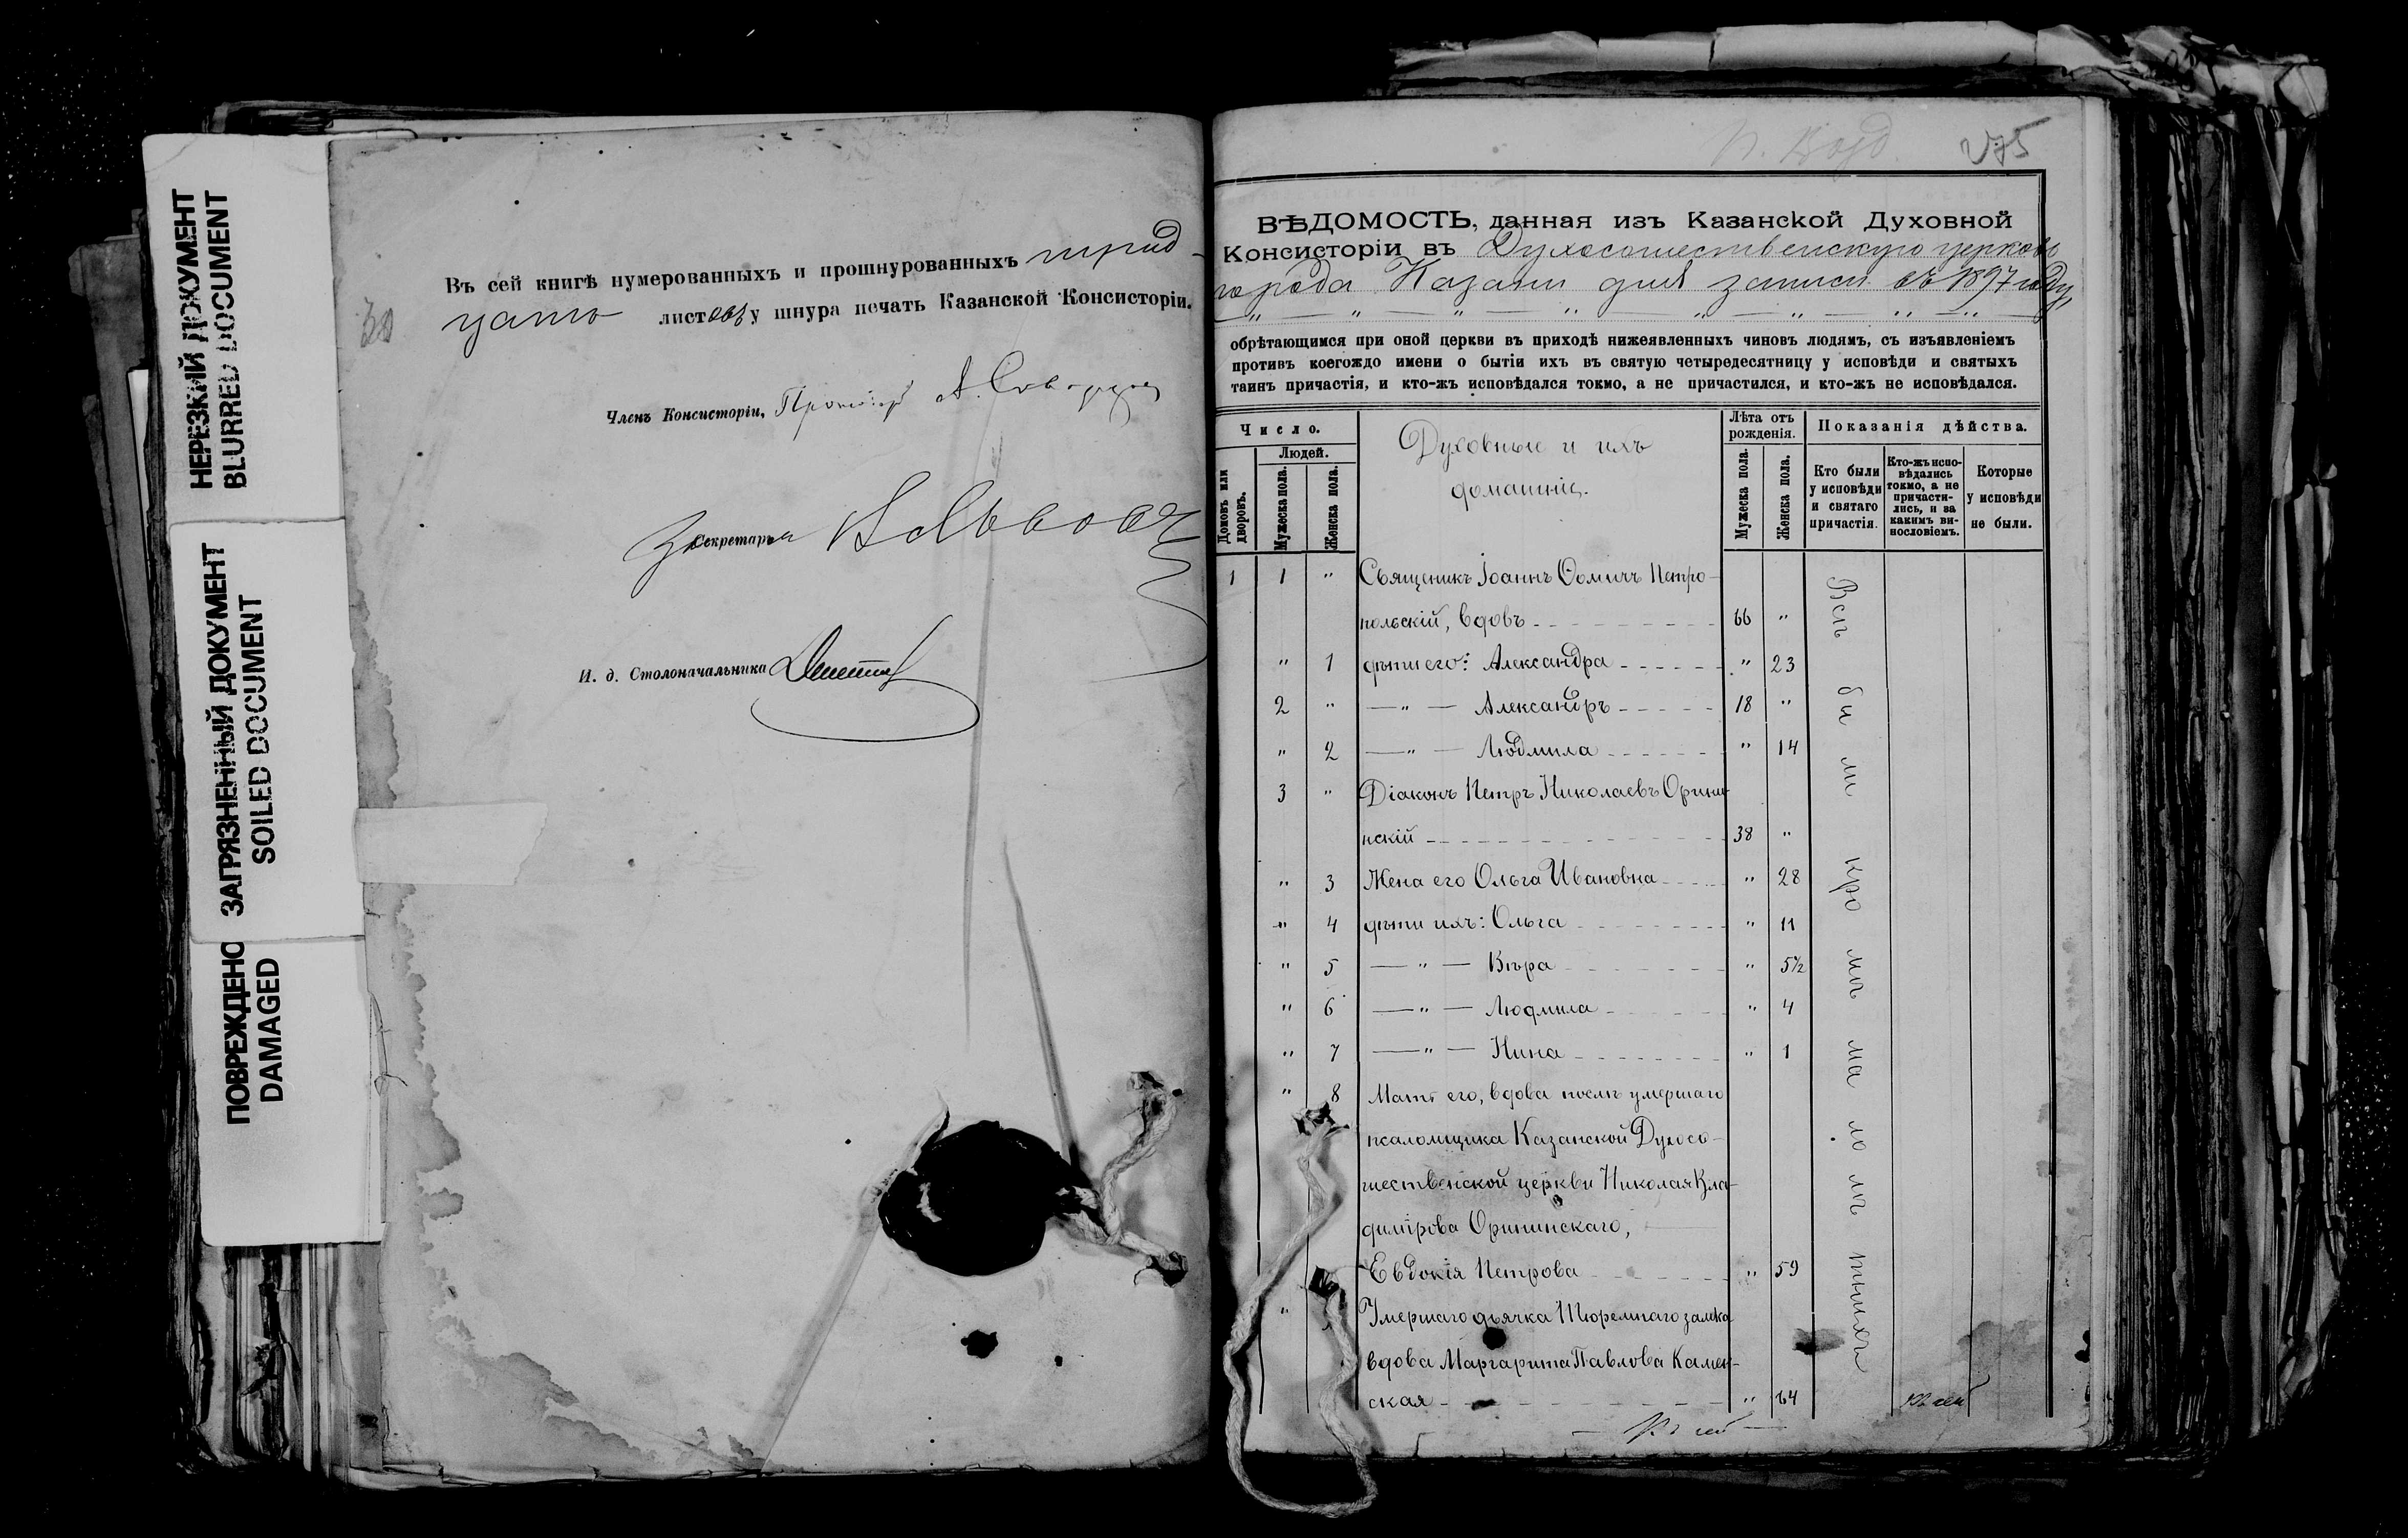 НЕРЕЗКИЙ ДОКУМЕНТ
BLURRED DOCUMENT
ЗАГРЯЗНЕННЫЙ ДОКУМЕНТ
SOILED DOCUMENT
ПОВРЕЖДЕНО
DAMAGED
Въ сей книгѣ нумерованныхъ и прошнурованныхъ трид-
цать листовъ у шнура печать Казанской Консисторіи.
30
Членъ Консисторіи, А.
Секретаря
И. д. Столоначальника
275
ВѢДОМОСТЬ, данная изъ Казанской Духовной
Консисторіи въ Духосошественскую церковь
города Казани для записи въ 1897 году
обрѣтающимся при оной церкви въ приходѣ нижеявленныхъ чиновъ людямъ, съ изъявленіемъ
противъ коегождо имени о бытіи ихъ въ святую четыредесятницу у исповѣди и святыхъ
таинъ причастія, и кто-жъ исповѣдался токмо, а не причастился, и кто-жъ не исповѣдался.
Число.
Людей.
Домовъ или дворовъ.
Мужеска пола.
Женска пола.
Духовные и ихъ
домашніе.
Лѣта отъ рожденія.
Мужеска пола.
Женска пола.
Показанія дѣйства.
Кто были у исповѣди и святаго причастія.
Кто-жъ исповѣдались токмо, а не причастились, и за какимъ винословіемъ.
Которые у исповѣди не были.
1 1 " Священикъ Іоаннъ Ѳомичъ Петро-
польскій, вдовъ 66 "
" 1 дѣти его: Александра " 23
2 " — " — Александръ 18 "
" 2 — " — Людмила " 14
3 " Діаконъ Петръ Николаевъ Орини-
нскій 38 "
" 3 Жена его Ольга Ивановна " 28
" 4 дѣти ихъ: Ольга " 11
" 5 — " — Вѣра " 5½
" 6 — " — Людмила " 4
" 7 — " — Нина " 1
" 8 Мать его, вдова послѣ умершаго
псаломщика Казанской Духосо-
шественской церкви Николая Вла-
димірова Орининскаго,
Евдокія Петрова " 59
" Умершаго дьячка Тюремнаго замка
вдова Маргарита Павлова Камен-
ская " 64
Всѣ были кромѣ малолѣтнихъ